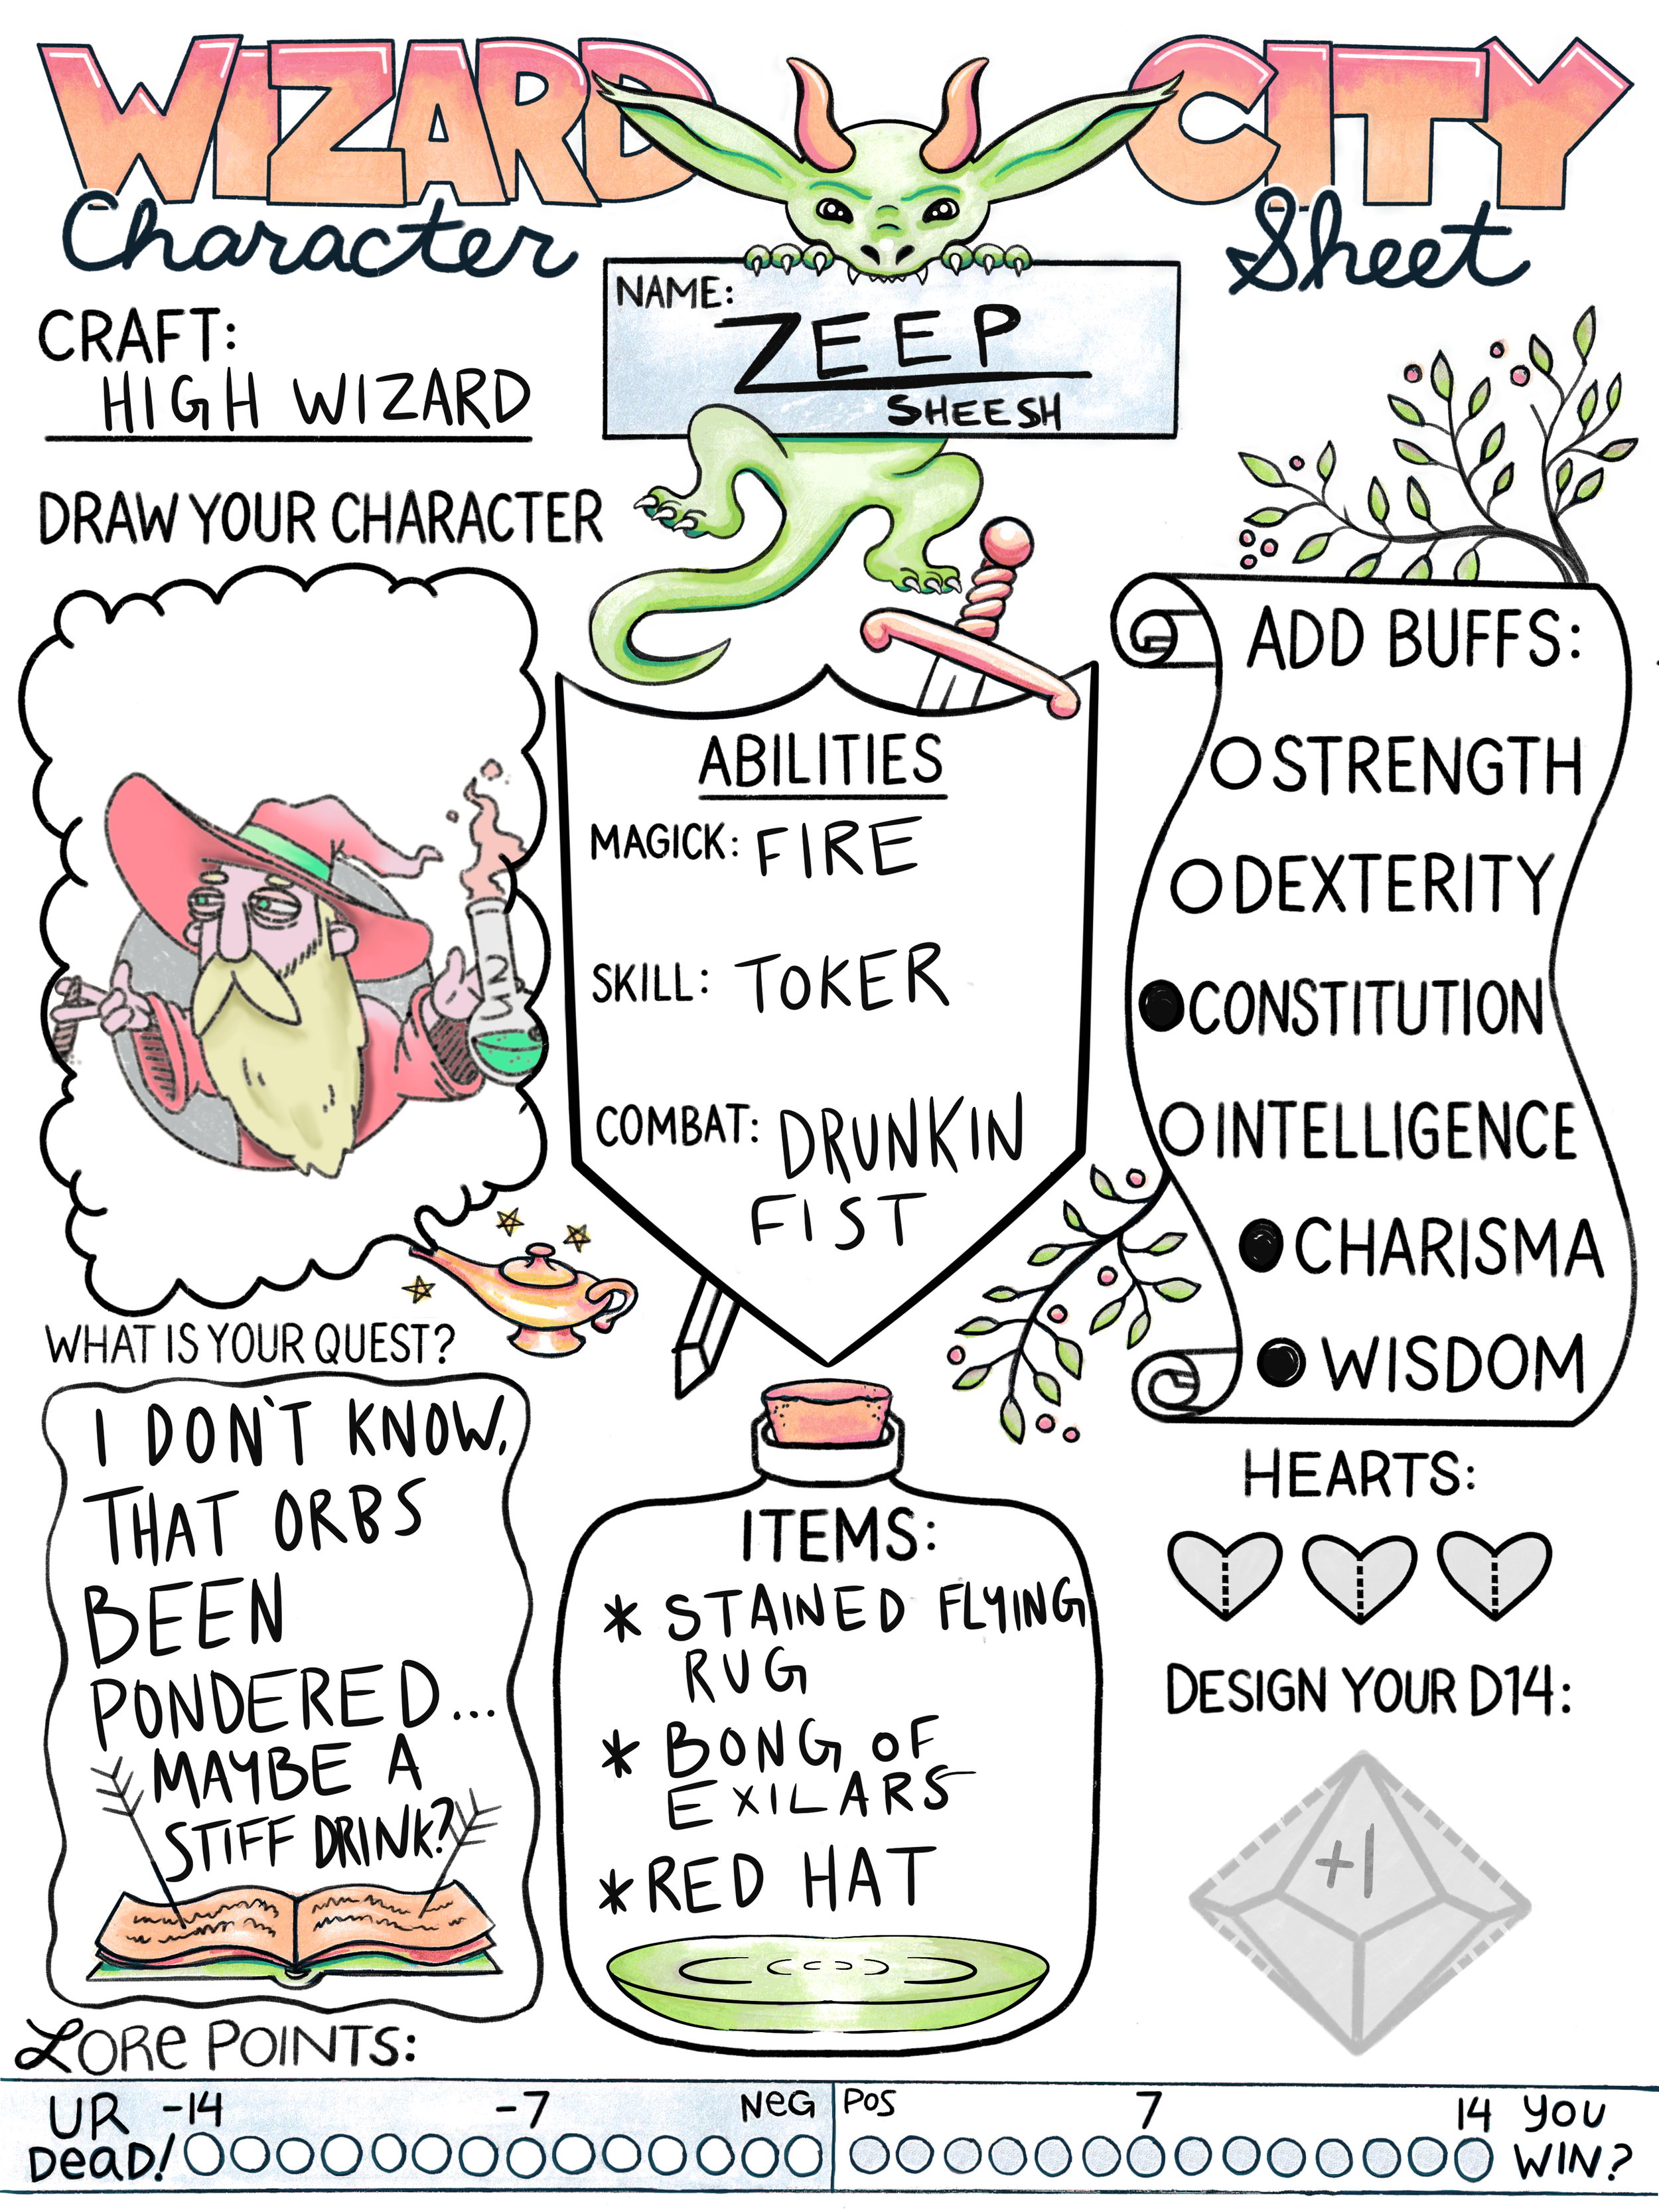 WIZARD CITY
Character Sheet
NAME:
ZEEP
SHEESH
CRAFT:
HIGH WIZARD
DRAW YOUR CHARACTER
ABILITIES
MAGICK: FIRE
SKILL: TOKER
COMBAT: DRUNKIN
FIST
ADD BUFFS:
STRENGTH
DEXTERITY
CONSTITUTION
INTELLIGENCE
CHARISMA
WISDOM
WHAT IS YOUR QUEST?
I DON'T KNOW,
THAT ORBS
BEEN
PONDERED...
MAYBE A
STIFF DRINK?
ITEMS:
* STAINED FLYING
RUG
* BONG OF
EXILARS
* RED HAT
HEARTS:
DESIGN YOUR D14:
+1
LORe POINTS:
UR
DeaD!
-14
-7
NeG
POS
7
14
YOU
WIN?